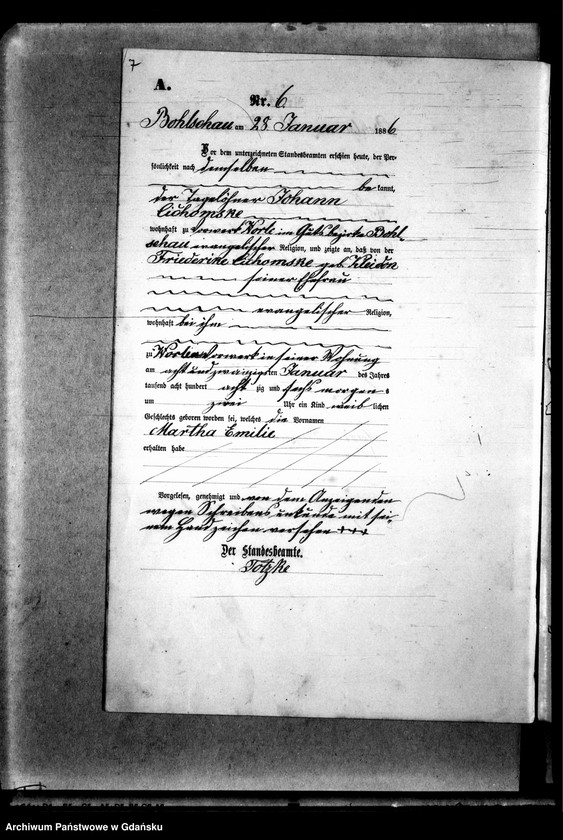 7
A.
Nr. 6
Bohlschau am 28. Januar 1886
Vor dem unterzeichneten Standesbeamten erschien heute, der Per-
sönlichkeit nach demselben
be kannt,
der Tagelöhner Johann
Cichomske
wohnhaft zu Vorwerk Worle im Gutsbezirke Bohl-
schau evangelischer Religion, und zeigte an, daß von der
Friederike Cichomske geb.
seiner Ehefrau
evangelischer Religion,
wohnhaft bei ihm
zu Vorwerk in seiner Wohnung
am acht und zwanzigsten Januar des Jahres
tausend acht hundert acht zig und sechs morgens
um zwei Uhr ein Kind weib lichen
Geschlechts geboren worden sei, welches die Vornamen
Martha Emilie
erhalten habe
Vorgelesen, genehmigt und von dem Anzeigenden
wegen Schreibensunkunde mit sei-
nem Handzeichen versehen +++
Der Standesbeamte.
Totzke
Archiwum Państwowe w Gdańsku